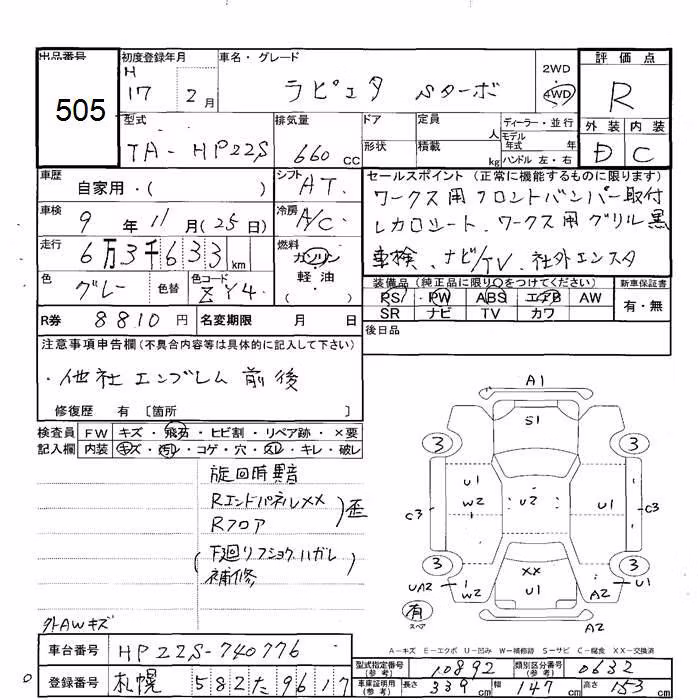 出品番号
505
初度登録年月
H
17 2月
車名・グレード
ラピュタ Sターボ
2WD
4WD
評価点
R
外装 内装
D C
型式
TA-HP22S
排気量
660 cc
ドア
形状
定員 人
積載 kg
ディーラー・並行
モデル年式 年
ハンドル 左・右
車歴
自家用・( )
シフト
AT
セールスポイント (正常に機能するものに限ります)
ワークス用フロントバンパー取付
レカロシート、ワークス用グリル黒
車検、ナビ/TV、社外エンスタ
車検
9年 11月(25日)
冷房
A/C
走行
6万3千633 km
燃料
ガソリン
軽・油
色
グレー
色替
色コード
ZY4
装備品(純正品に限り○をつけてください)
PS PW ABS エアB AW
SR ナビ TV カワ
新車保証書
有・無
R券 8810円
名変期限 月 日
後日品
注意事項申告欄(不具合内容等は具体的に記入して下さい)
・他社エンブレム前後
修復歴 有 〔箇所 〕
検査員記入欄
FW キズ・飛石・ヒビ割・リペア跡・×要
内装 キズ・汚レ・コゲ・穴・スレ・キレ・破レ
旋回時異音
RエンドパネルXX
Rフロア
)歪
(下廻リフショクハガレ
補修 )
外AWキズ
A1
S1
3 3
U1
W2
U2
U1
C3 C3
3 3
XX
U1
UA2
W2
A2
U1
A2
有
スペア
A-キズ E-エクボ U-凹み W-補修跡 S-サビ C-腐食 XX-交換済
車台番号 HP22S-740776
登録番号 札幌 582た9617
型式指定番号(参考) 10892
類別区分番号(参考) 0632
車庫証明用(参考) 長さ 339cm 幅 147cm 高さ 153cm